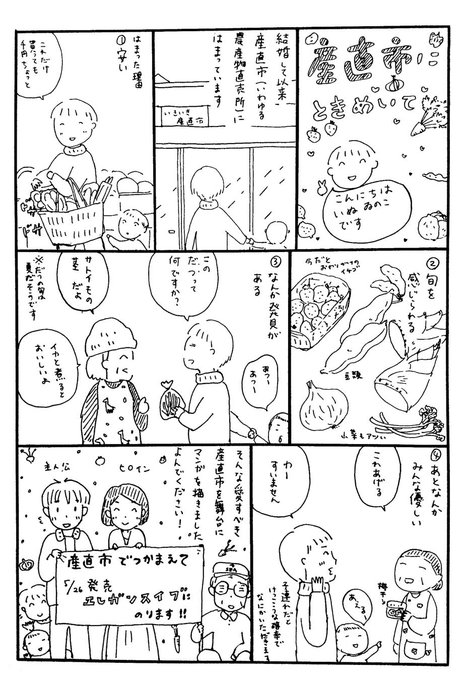 産直市に
ときめいて
こんにちは
いぬゐのこ
です
結婚して以来
産直市(いわゆる
農産物直売所)に
はまっています
いきいき
産直市
はまった理由
①安い
これだけ
買っても
千円ちょっと
②旬を
感じられる
今だと
おわりかけの
イチゴ
豆類
山菜もアツい
③なんか発見が
ある
この
だつって
何ですか?
あつー
あつー
サトイモの
茎だよ
イカと煮ると
おいしいよ
※だつの旬は
夏だそうです
④あとなんか
みんな優しい
これあげる
わー
すいません
梅干
あえる
子連れだと
けっこうな確率で
なにかいただけます
そんな愛すべき
産直市を舞台に
マンガを描きました
よんでください!
主人公
ヒロイン
産直市でつかまえて
5/26発売
エレガンスイブに
のります!!